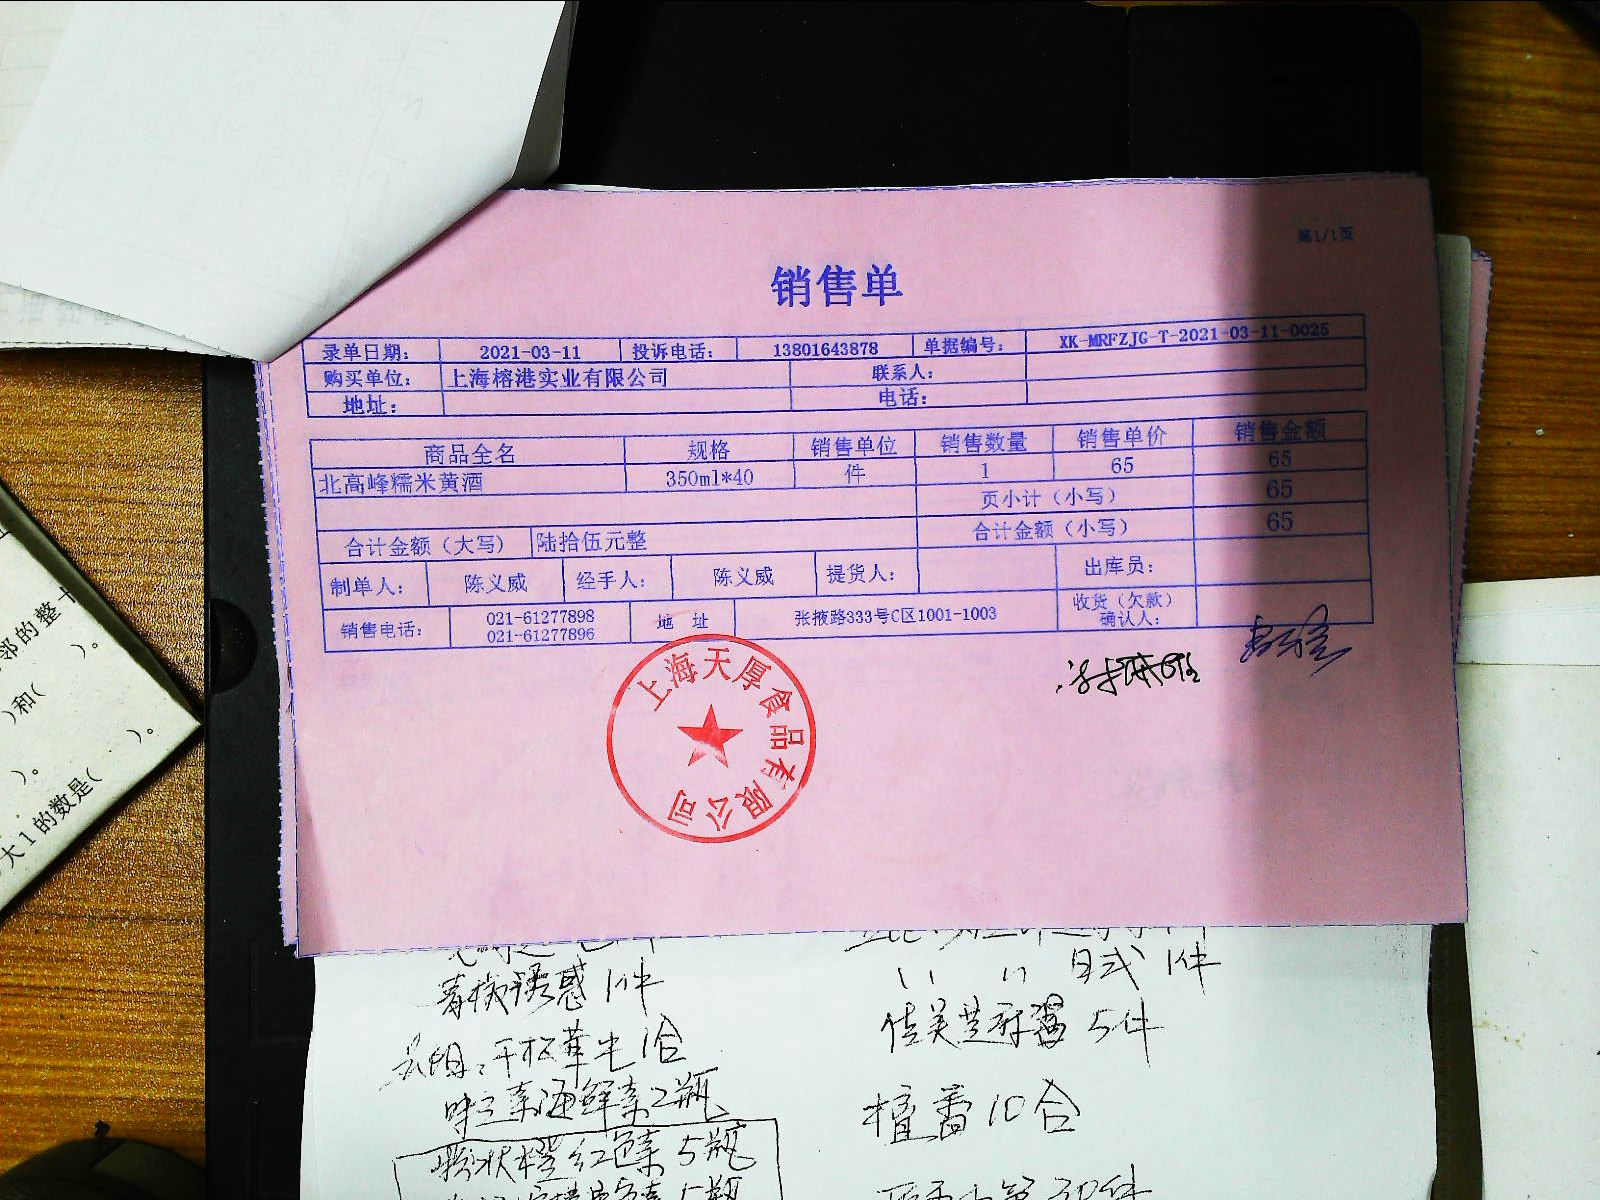 第1/1页
销售单
录单日期： 2021-03-11 投诉电话： 13801643878 单据编号： XK-MRFZJG-T-2021-03-11-0025
购买单位： 上海榕港实业有限公司 联系人：
地址： 电话：
商品全名 规格 销售单位 销售数量 销售单价 销售金额
北高峰糯米黄酒 350ml*40 件 1 65 65
页小计（小写） 65
合计金额（大写） 陆拾伍元整 合计金额（小写） 65
制单人： 陈义威 经手人： 陈义威 提货人： 出库员：
销售电话： 021-61277898 021-61277896 地址 张掖路333号C区1001-1003 收货（欠款）确认人：
上海天厚食品有限公司
邻的整十
)和( )。
)。
)。
大1的数是(
诱惑 1件
日式 1件
5件
1合
海鲜素2瓶
檀香10合
橙红色素 5瓶